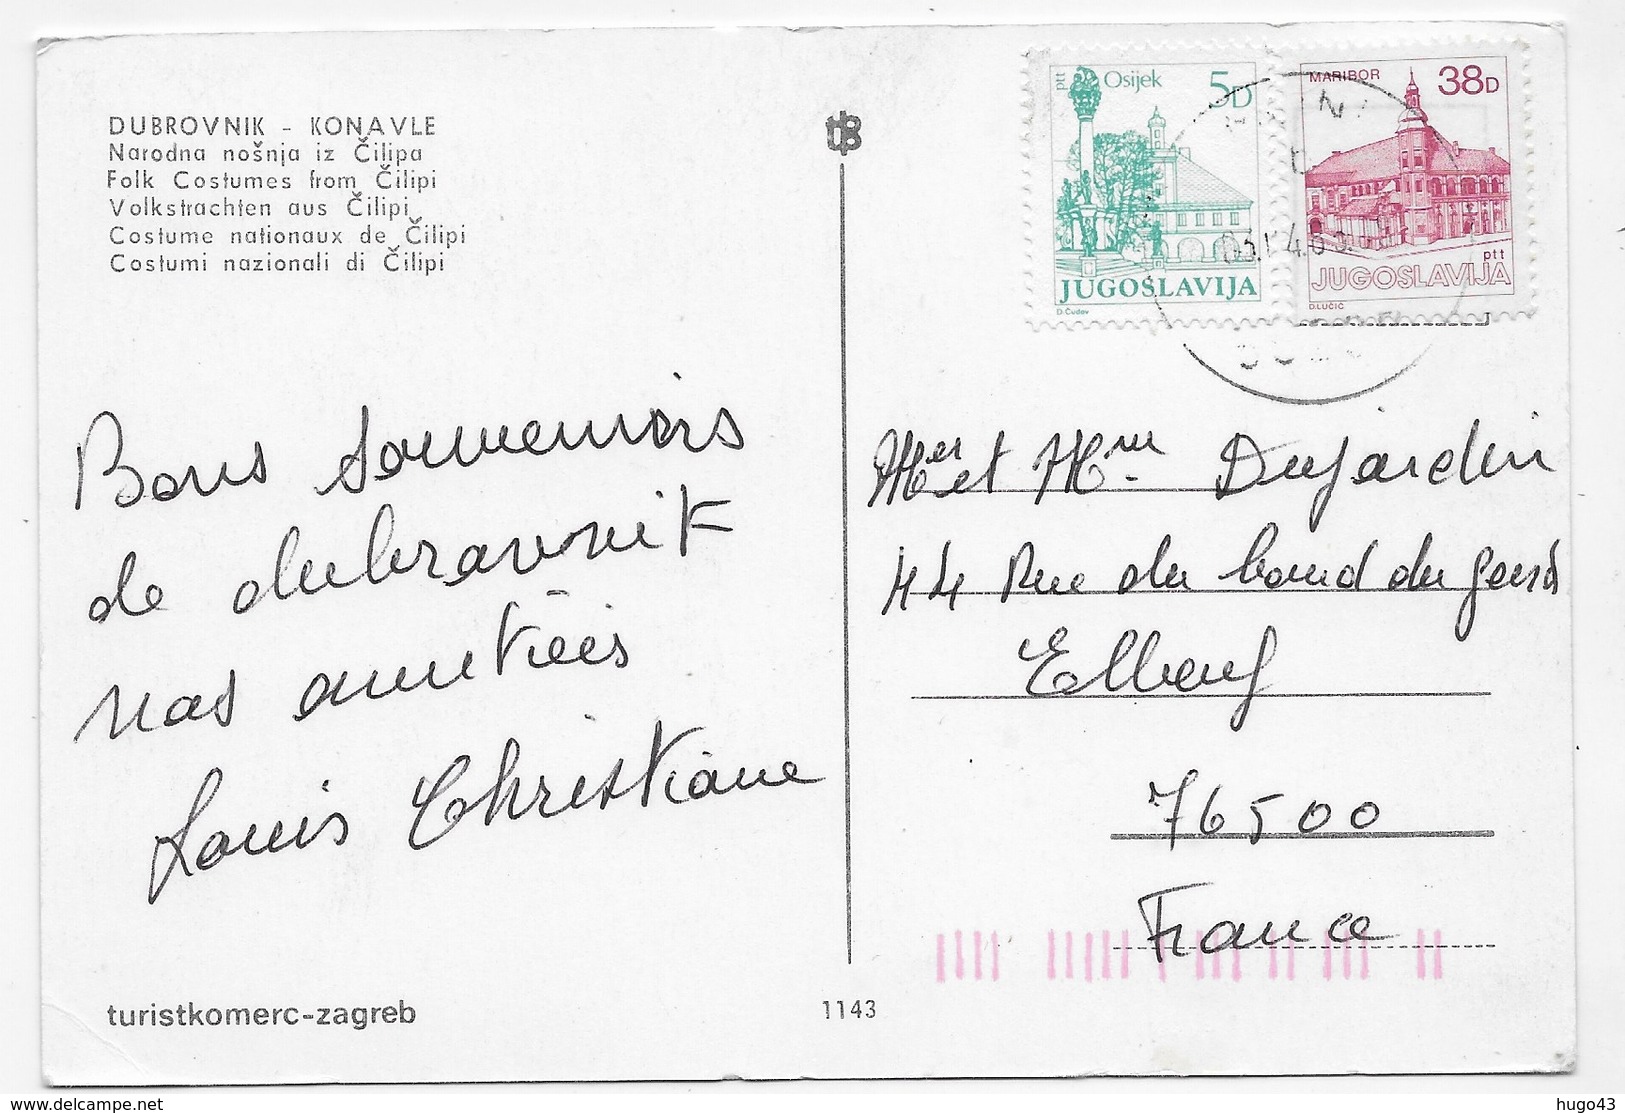 DUBROVNIK - KONAVLE
Narodna nošnja iz Čilipa
Folk Costumes from Čilipi
Volkstrachten aus Čilipi
Costume nationaux de Čilipi
Costumi nazionali di Čilipi
ptt Osijek 5D
JUGOSLAVIJA
D.Čudov
MARIBOR 38D
ptt
JUGOSLAVIJA
D.LUČIĆ
Bons souvenirs
de dubravnik
nos amitiés
Louis Christiane
Mer et Mme Dujardin
44 Rue du
Elbeuf
76500
France
turistkomerc-zagreb
1143
www.delcampe.net
hugo43